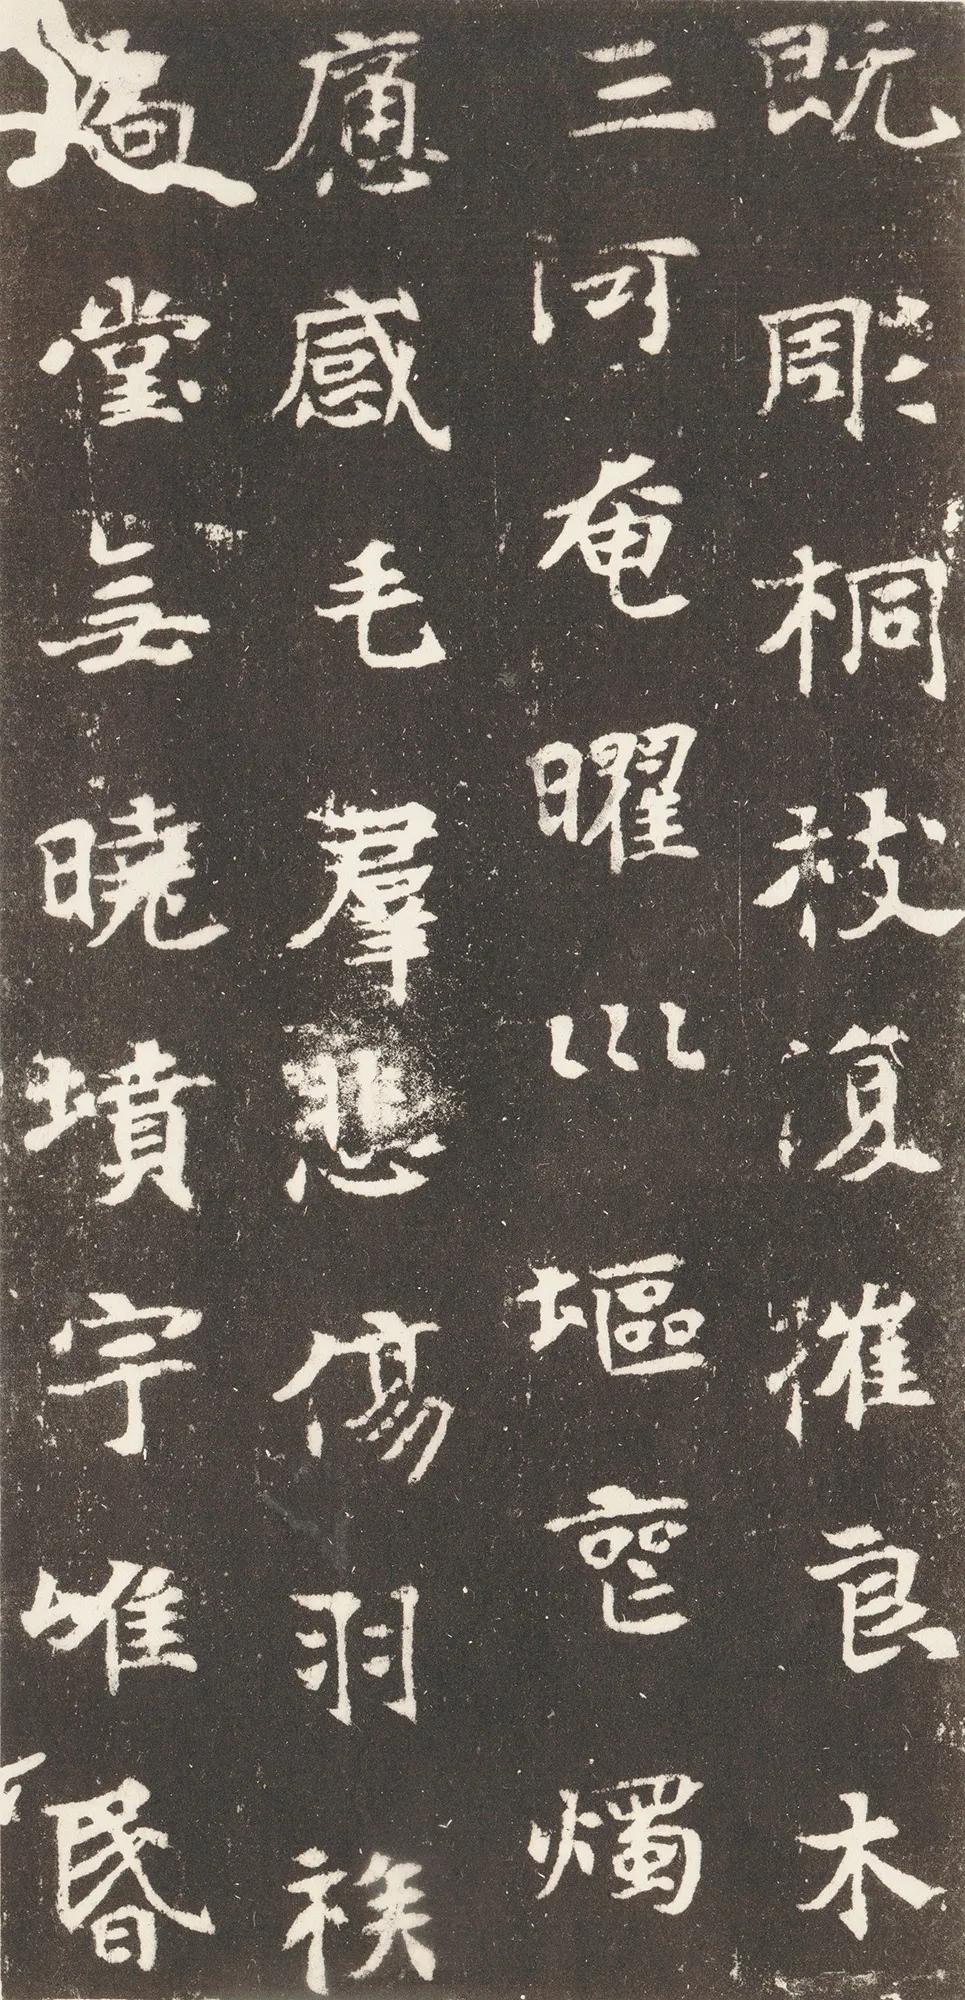 既彫桐枝復摧良木
三河奄曜巛塸喪燭
痛感毛羣悲傷羽族
扃堂無曉墳宇唯昏